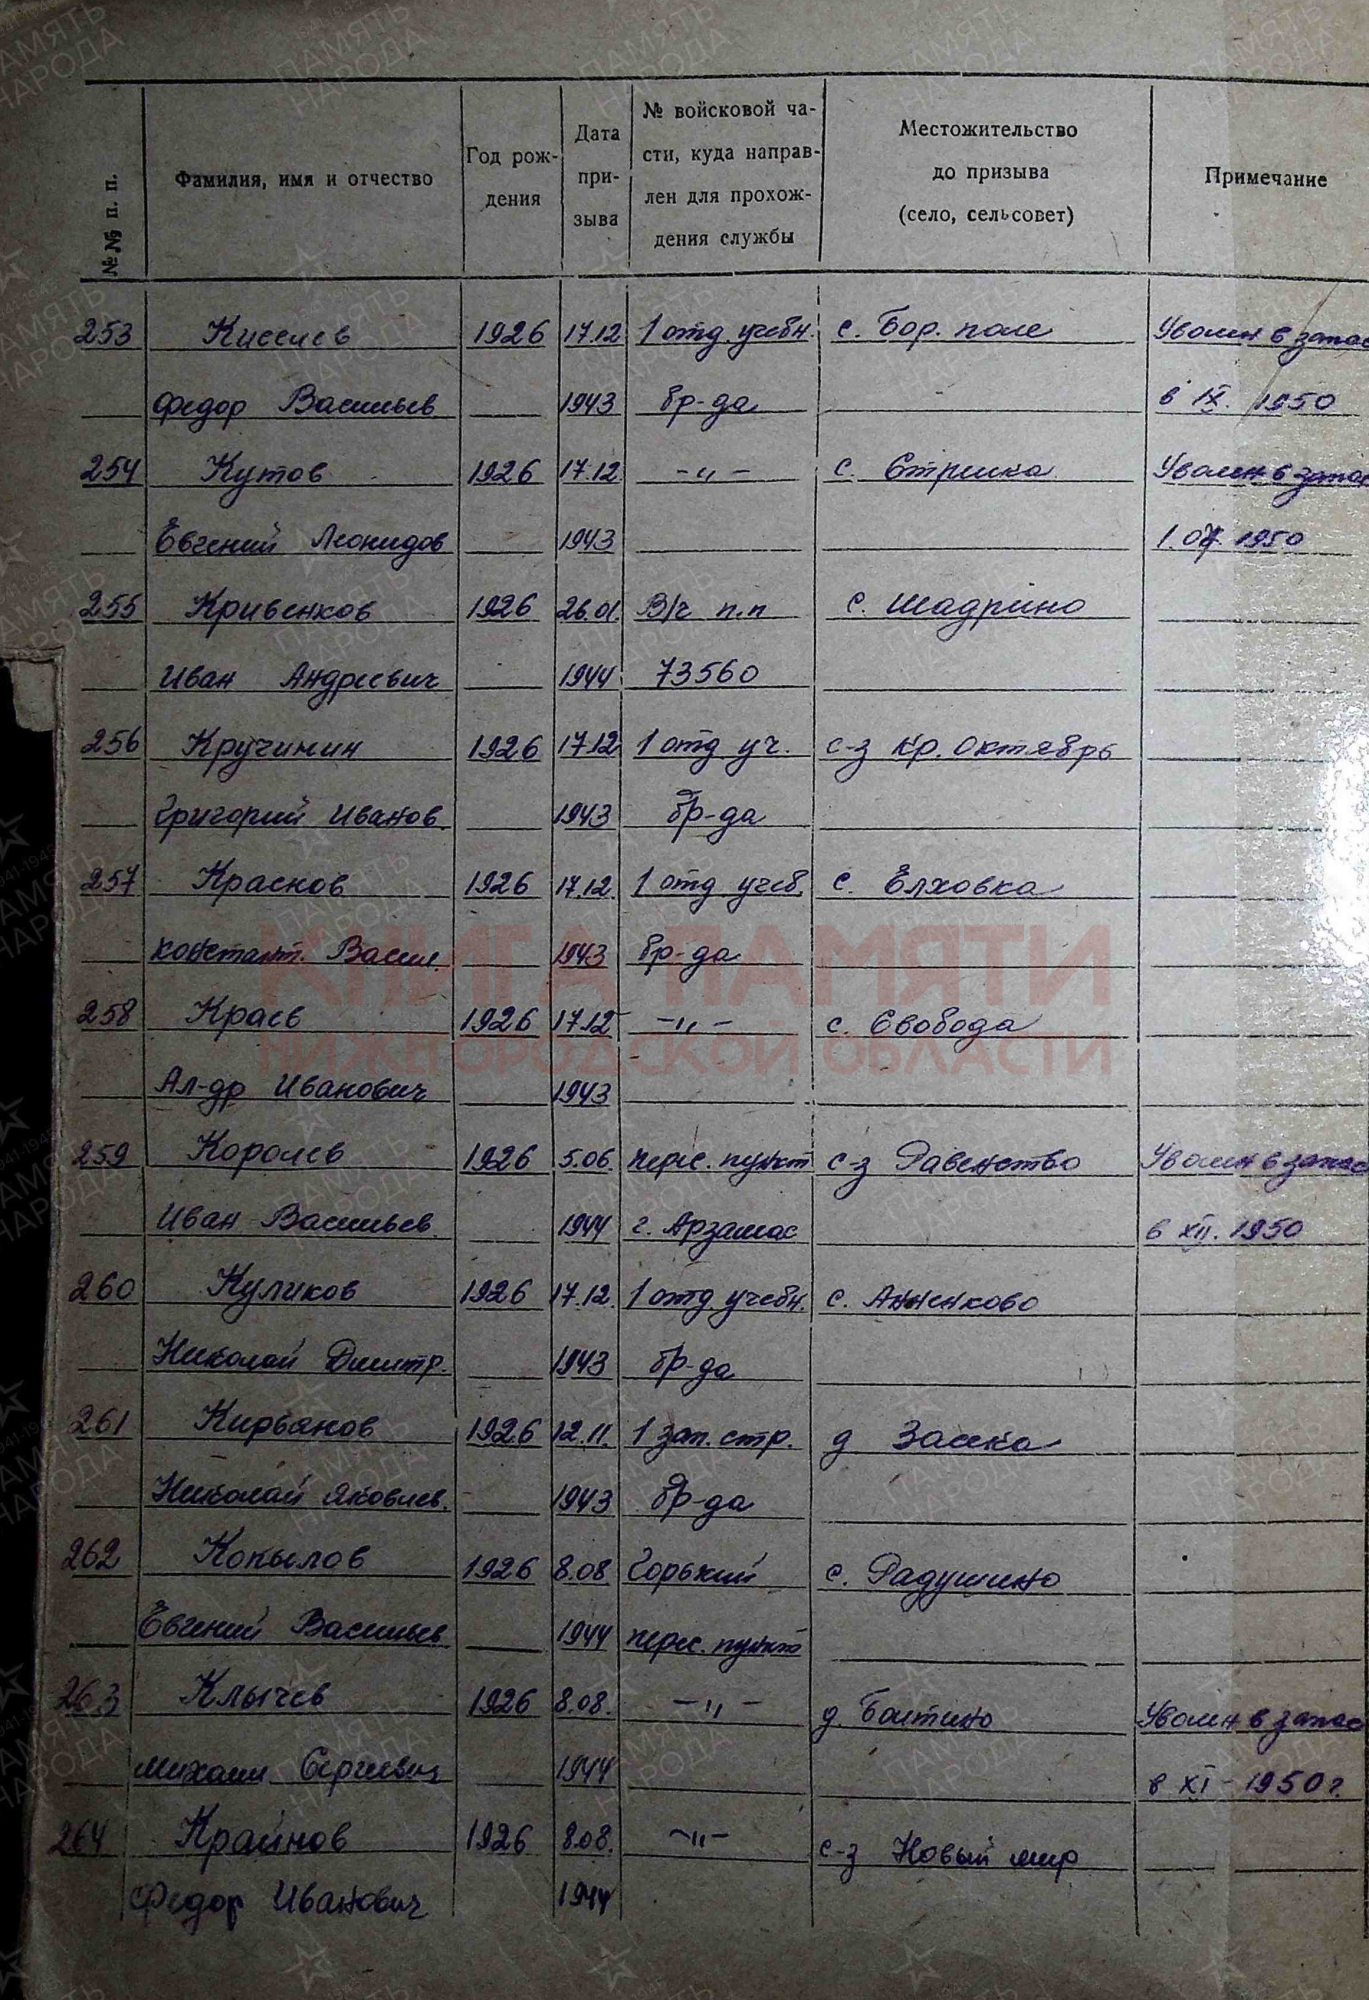 №№ п. п.
Фамилия, имя и отчество
Год рож-
дения
Дата
при-
зыва
№ войсковой ча-
сти, куда направ-
лен для прохож-
дения службы
Местожительство
до призыва
(село, сельсовет)
Примечание
253 Киселев 1926 17.12 1 отд. учебн. с. Бор. поле Уволен в запас
Федор Васильев 1943 бр-да в IX. 1950
254 Кутов 1926 17.12 -"- с. Стрелка Уволен в запас
Евгений Леонидов 1943 1. 1950
255 Кривенков 1926 26.01. В/ч п.п с. Шадрино
Иван Андреевич 1944 73560
256 Кручинин 1926 17.12 1 отд уч. с-з Кр. Октябрь
Григорий Иванов. 1943 бр-да
257 Краснов 1926 17.12. 1 отд учеб. с. Елховка
Констант. Васил. 1943 бр-да
258 Краев 1926 17.12 -"- с. Свобода
Ал-др Иванович 1943
259 Королев 1926 5.06. перес. пункт с-з Равенство Уволен в запас
Иван Васильев. 1944 г. Арзамас в XII. 1950
260 Куликов 1926 17.12. 1 отд учебн. с. Анненково
Николай Дмитр. 1943 бр-да
261 Кирьянов 1926 12.11. 1 зап. стр. д
Николай Яковлев. 1943 бр-да
262 Копылов 1926 8.08 Горький с. Радушино
Евгений Васильев 1944 перес. пункт
263 Клычев 1926 8.08. -"- д. Уволен в запас
Михаил Сергеевич 1944 в XI - 1950 г.
264 Крайнов 1926 8.08. -"- с-з Новый мир
Федор Иванович 1944
КНИГА ПАМЯТИ
НИЖЕГОРОДСКОЙ ОБЛАСТИ
ПАМЯТЬ
НАРОДА